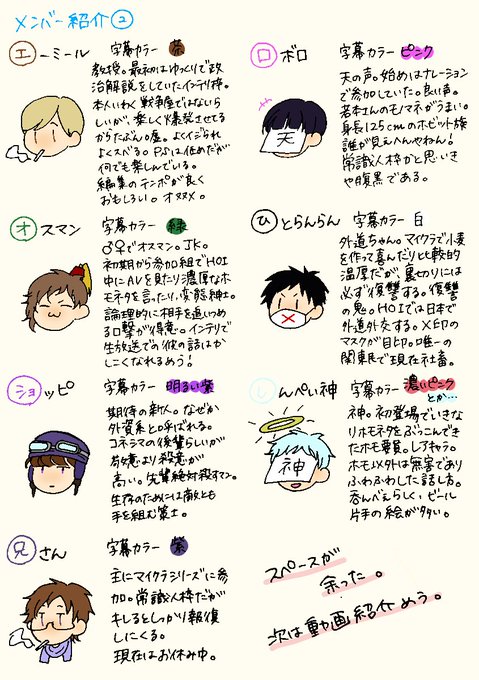 メンバー紹介②
エーミール 字幕カラー 茶
教授。最初はゆっくりで政
治解説をしていたインテリ枠。
本人いわく戦争屋ではないら
しいが、楽しく爆発させてる
からたぶん屑。よくイジられ
よくスベる。PSは低めだが
何でも楽しんでいる。
編集のテンポが良く
おもしろい。オヌヌメ。
オスマン 字幕カラー 緑
♂♀でオスマン。JK。
初期から参加組でHOI
中にAVを見たり濃厚なホ
モネタを言ったり、変態紳士。
論理的に相手を追いつめ
る口撃が得意。インテリで
生放送での彼の話はか
しこくなれるめう！
ショッピ 字幕カラー 明るい紫
期待の新人。なぜか
外資系と呼ばれる。
コネシマの後輩らしいが
敬意より殺意が
高い。先輩絶対殺すマン。
生存のためには敵とも
手を組む策士。
兄さん 字幕カラー 紫
主にマイクラシリーズに参
加。常識人枠だが
キレるとしっかり報復
しにくる。
現在はお休み中。
ロボロ 字幕カラー ピンク
天の声。始めはナレーション
で参加していた。良い声。
若本さんのモノマネがうまい。
身長125cmのホビット族
誰が見えへんやねん！
常識人枠かと思いき
や腹黒である。
天
ひとらんらん 字幕カラー 白
外道ちゃん。マイクラで小麦
を作って喜んだり比較的
温厚だが、裏切りには
必ず復讐する。復讐
の鬼。HOIでは日本で
外道外交する。×印の
マスクが目印。唯一の
関東民で現在社畜。
しんぺい神 字幕カラー 濃いピンク
とか…
神。初登場でいきな
りホモネタをぶっこんでき
たホモ要員。レアキャラ。
ホモ以外は無害であり
ふわふわした話し方。
呑んべえらしく、ビール
片手の絵が多い。
神
スペースが
余った。
次は動画紹介めう。